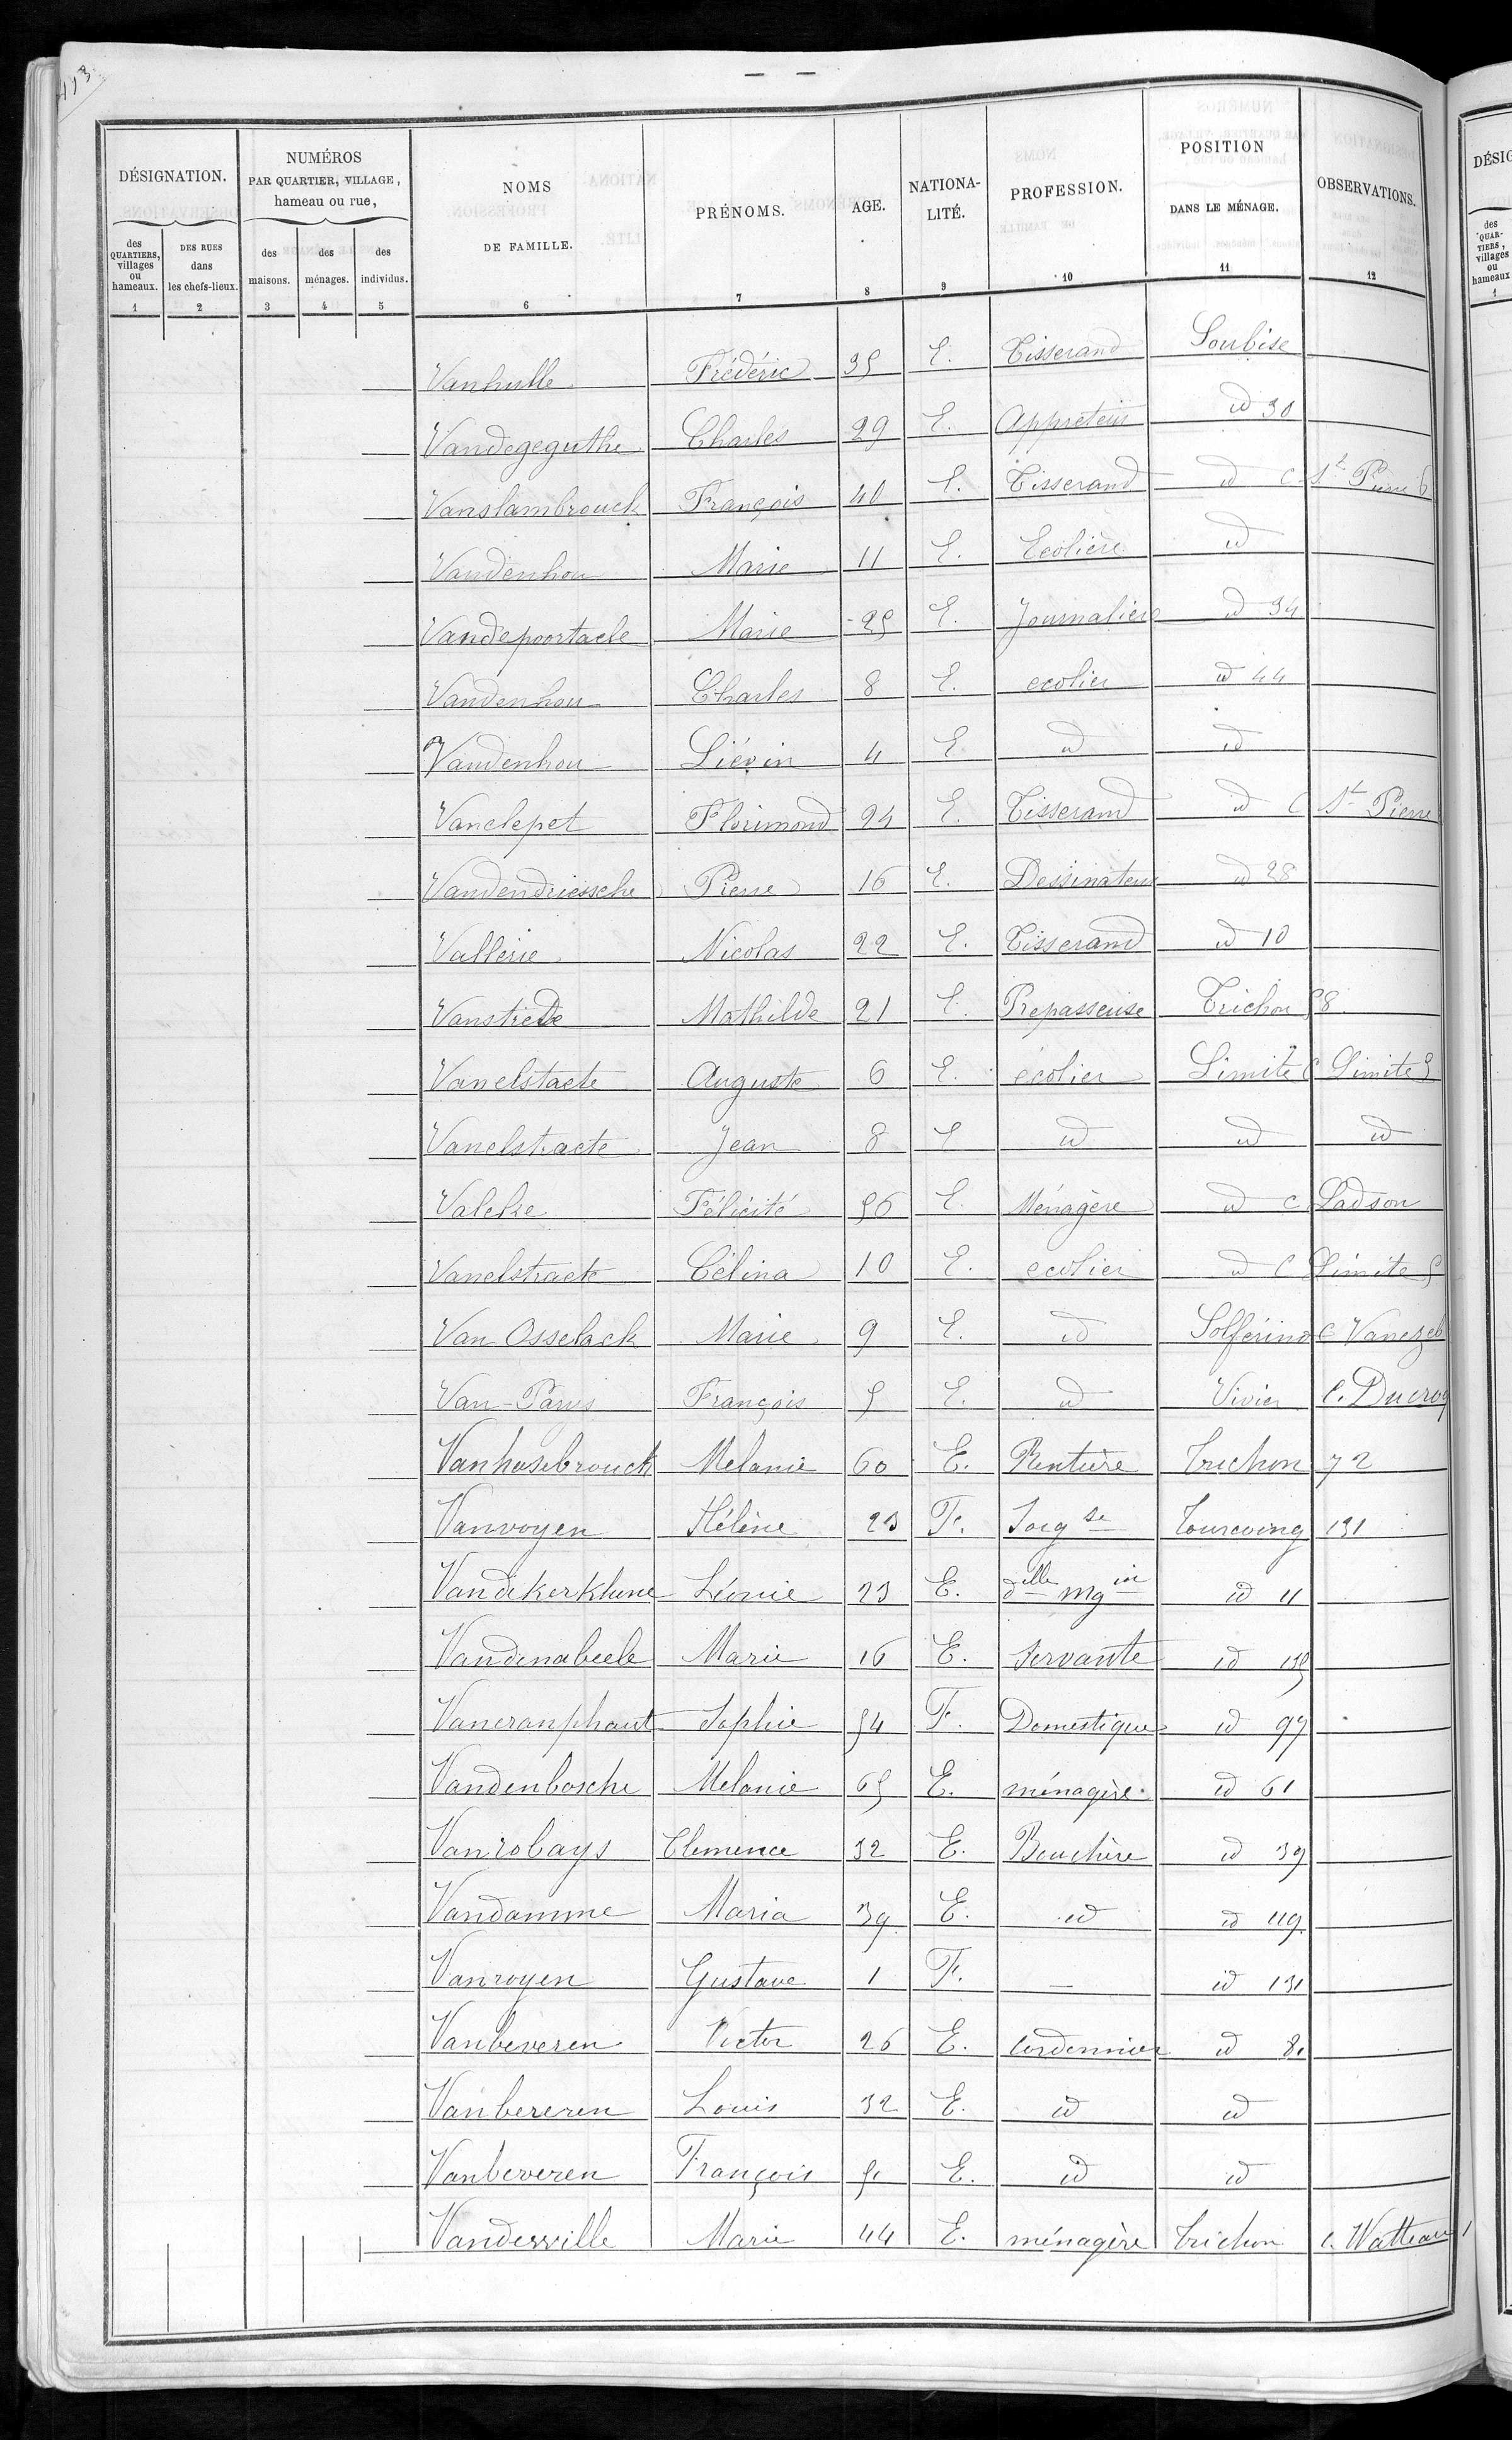 413
DÉSIGNATION.
NUMÉROS PAR QUARTIER, VILLAGE, hameau ou rue,
NOMS DE FAMILLE.
PRÉNOMS.
AGE.
NATIONALITÉ.
PROFESSION.
POSITION DANS LE MÉNAGE.
OBSERVATIONS.
des QUARTIERS, villages ou hameaux.
DES RUES dans les chefs-lieux.
des maisons.
des ménages.
des individus.
1 2 3 4 5 6 7 8 9 10 11 12
Vanhulle Frédéric 35 E. Tisserand Soubise
Vandegeguthe Charles 29 E. Appreteur id 30
Vanslambrouck François 40 E. Tisserand id C St Pierre 6
Vandenhou Marie 11 E. Ecolière id
Vandepoortaele Marie 25 E. Journalière id 34
Vandenhou Charles 8 E. ecolier id 44
Vandenhou Liévin 4 E id id
Vanclepet Florimond 24 E. Tisserand id C St Pierre
Vandendriessche Pierre 16 E. Dessinateur id 28
Vallerie Nicolas 22 E. Tisserand id 10
Vanstiede Mathilde 21 E. Repasseuse Trichon 58
Vanelstaete Auguste 6 E. écolier Limite C Limite 5
Vanelstraete Jean 8 E id id id
Valcke Félicité 56 E. Ménagère id C Ladson
Vanelstraete Célina 10 E. ecolier id C Limite 5
Van Osselack Marie 9 E. id Solférino C Vanezel
Van-Parys François 5 E. id Vivier C. Ducroq
Vanhasebrouck Melanie 60 E. Rentière Trichon 72
Vanroyen Hélène 23 F. Soigse Tourcoing 131
Vandekerkhove Léonie 23 E. delle mgin id 11
Vandenabeele Marie 16 E. Servante id 115
Vancranphaut Sophie 54 F. Domestique id 97
Vandenbosche Melanie 65 E. ménagère id 61
Vanrobays Clemence 32 E. Bouchère id 39
Vandamme Maria 39 E. id id 119
Vanroyen Gustave 1 F. — id 131
Vanbeveren Victor 26 E. Cordonnier id 81
Vanbeveren Louis 32 E. id id
Vanbeveren François 51 E. id id
Vanderville Marie 44 E. ménagère Trichon c. Watteau 1
DÉSIG
des QUARTIERS, villages ou hameaux
1